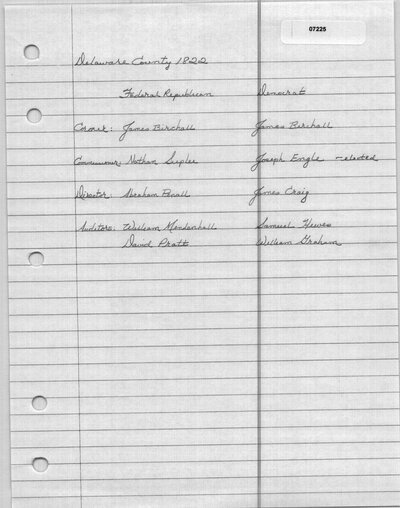 07225
Delaware County 1822
Federal Republican Democrat
Coroner: James Birchall James Birchall
Commissioner: Nathan Sipler Joseph Engle - elected
Director: Abraham Powell James Craig
Auditors: William Mendenhall Samuel Hewes
David Pratt William Graham